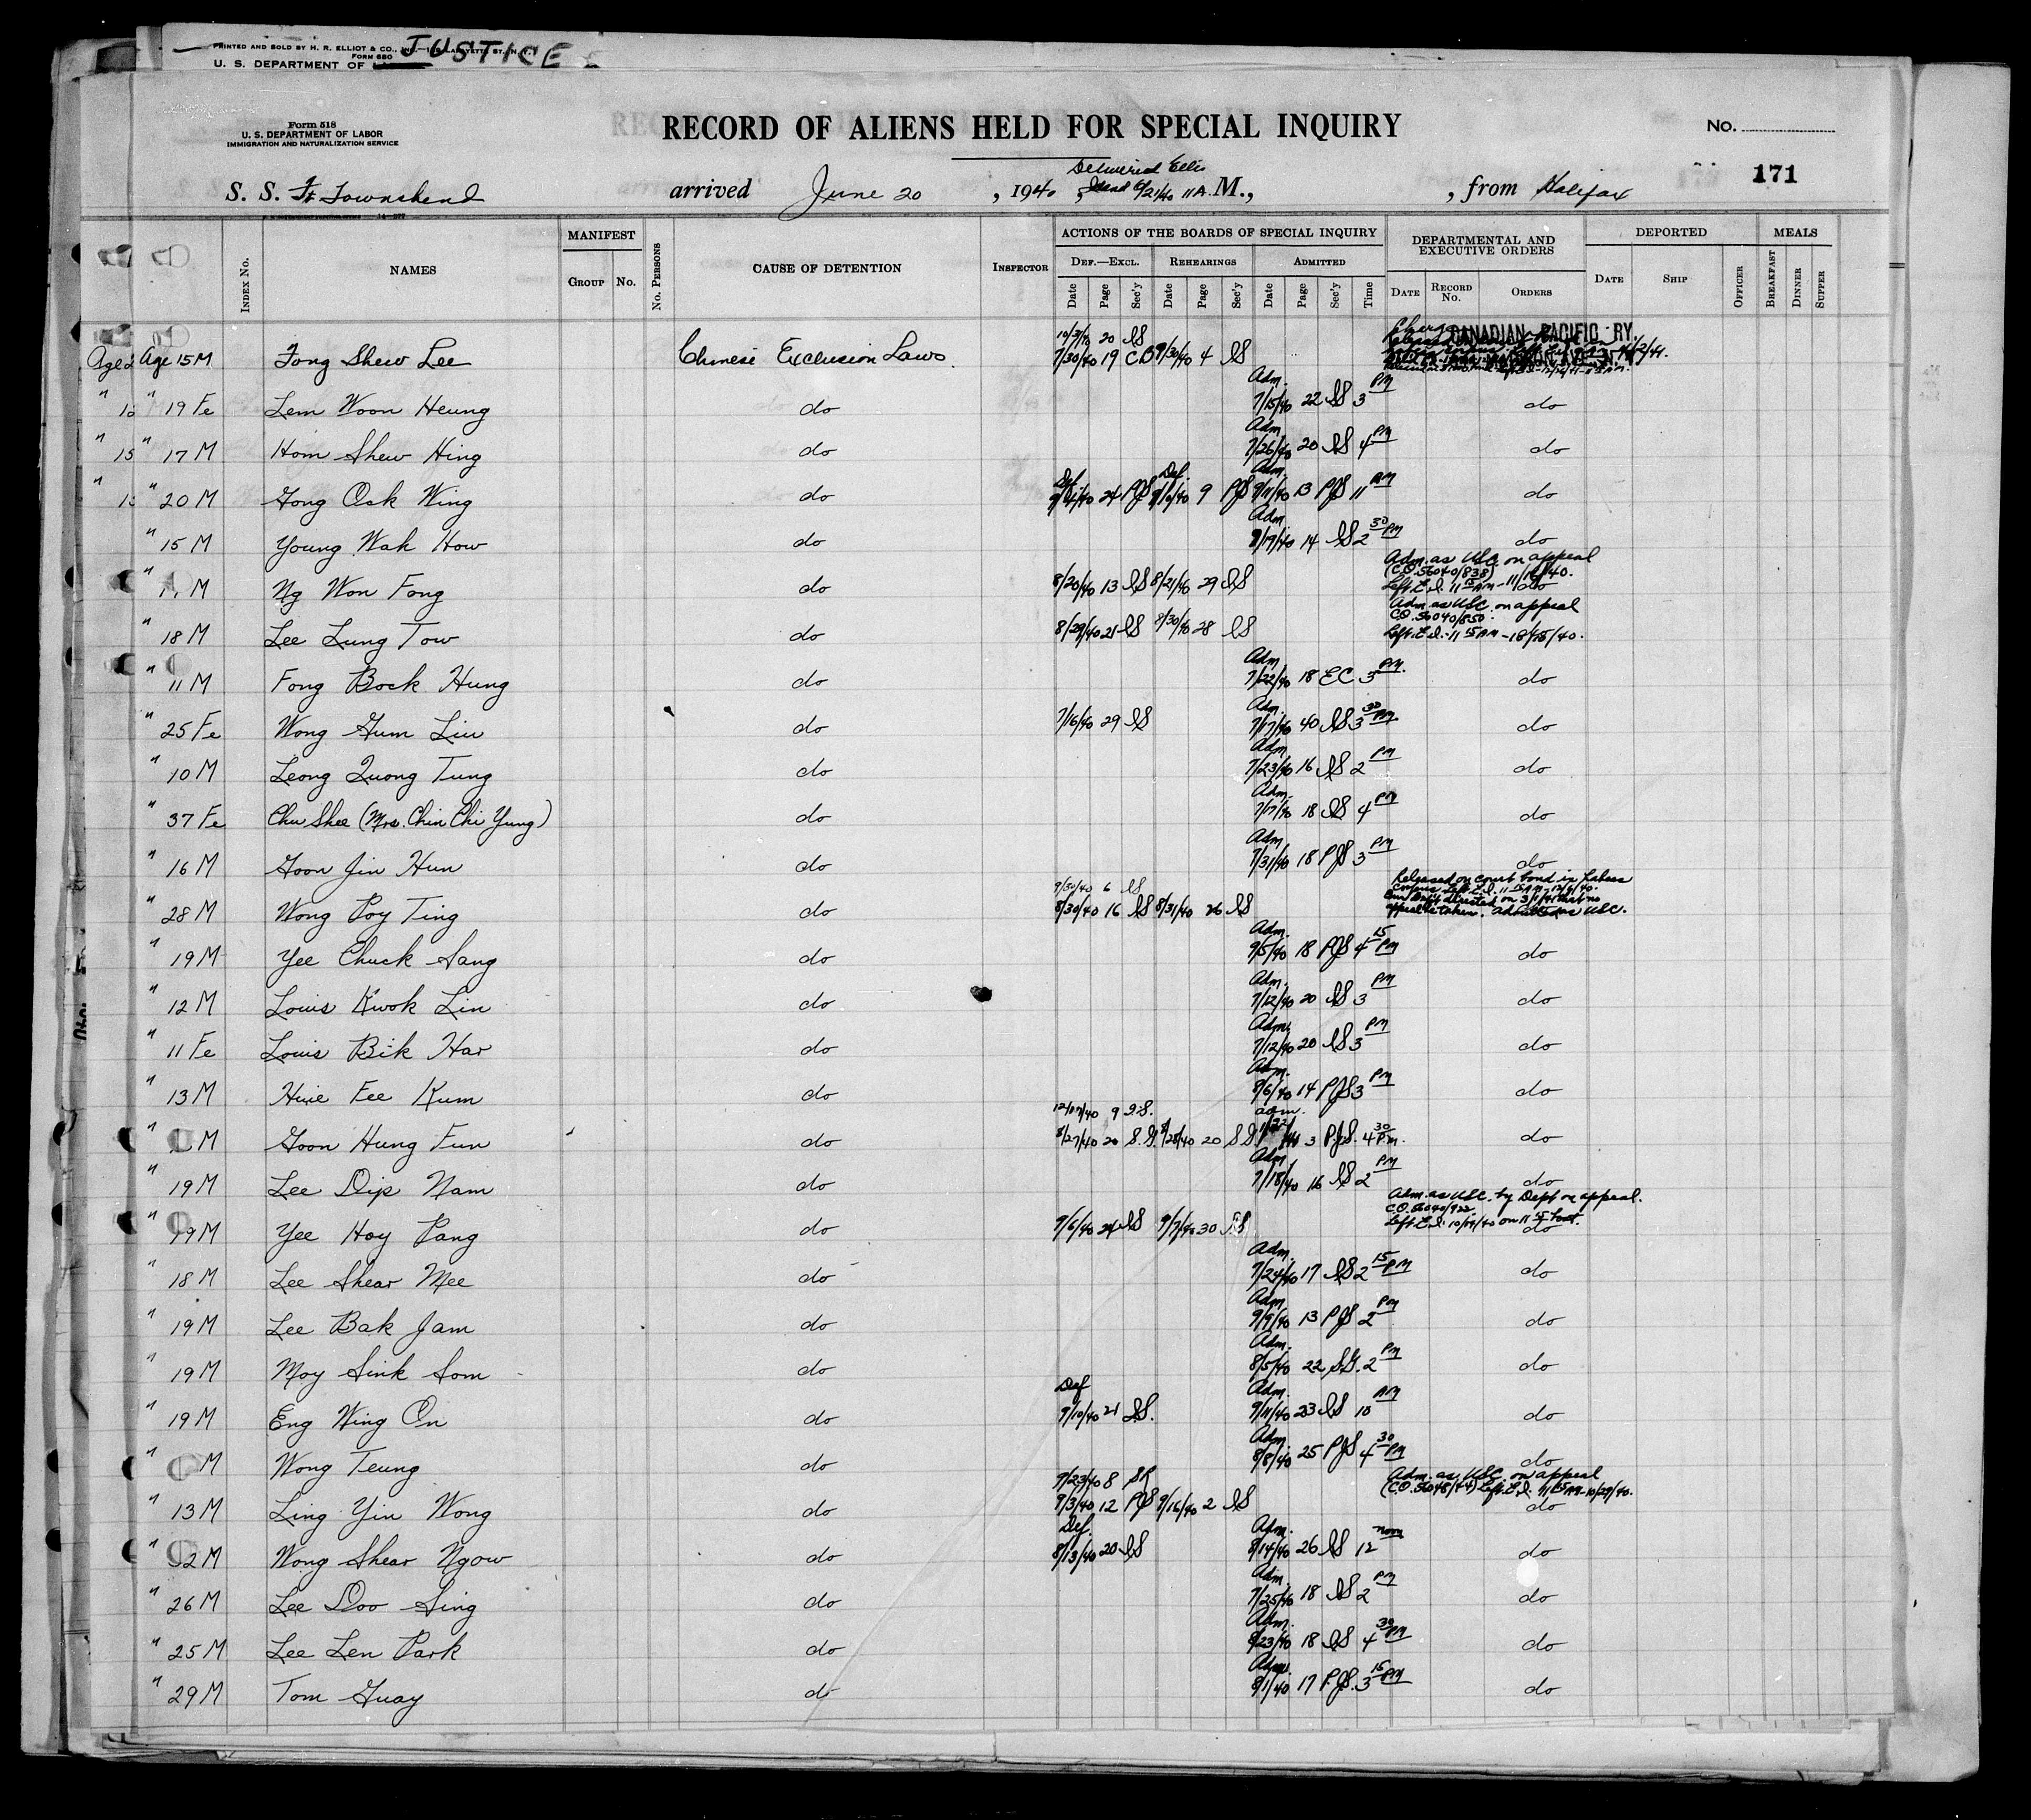 PRINTED AND SOLD BY H. R. ELLIOT & CO., INC.
FORM 680
U. S. DEPARTMENT OF JUSTICE
Form 518
U. S. DEPARTMENT OF LABOR
IMMIGRATION AND NATURALIZATION SERVICE
RECORD OF ALIENS HELD FOR SPECIAL INQUIRY
No.
171
S. S. Ft Townshend arrived June 20, 1940, Delivered Ellis Island 6/21/40 11 A.M., from Halifax
INDEX No. NAMES MANIFEST GROUP No. No. PERSONS CAUSE OF DETENTION INSPECTOR
ACTIONS OF THE BOARDS OF SPECIAL INQUIRY
DEF.—EXCL. REHEARINGS ADMITTED
Date Page Sec'y Date Page Sec'y Date Page Sec'y Time
DEPARTMENTAL AND EXECUTIVE ORDERS
DATE RECORD No. ORDERS
DEPORTED
DATE SHIP OFFICER
MEALS
BREAKFAST DINNER SUPPER
10/3/40 20 LS
CANADIAN PACIFIC RY.
Age 15 M Fong Shew Lee Chinese Exclusion Laws 7/30/40 19 9/30/40 4 LS
" 19 Fe Lem Woon Heung do Adm. 7/15/40 22 LS 3 PM do
" 17 M Hom Shew Hing do Adm 7/26/40 20 LS 4 PM do
" 20 M Gong Oak Wing do Def. 24 PJS Def. 9/10/40 9 PJS Adm. 9/11/40 13 PJS 11 AM do
" 15 M Young Wah How do Adm. 8/19/40 14 LS 2 30 PM do
Adm. as USC. on appeal
(C.O. 56040/838)
" M Ng Won Fong do 8/20/40 13 LS 8/21/40 29 LS Left E.I. 11 15 AM - 11/16/40. do
Adm. as USC. on appeal
C.O. 56040/850.
" 18 M Lee Lung Tow do 8/29/40 21 LS 8/30/40 28 LS Left E.I. - 11 15 AM
" 11 M Fong Bock Hung do Adm 7/22/40 18 EC 3 PM. do
" 25 Fe Wong Gum Lin do 7/16/40 29 LS Adm. 7/17/40 40 LS 3 30 PM do
" 10 M Leong Quong Tung do Adm 7/23/40 16 LS 2 PM do
" 37 Fe Chu Shee (Mrs. Chin Chi Yung) do Adm. 7/17/40 18 LS 4 PM do
" 16 M Goon Jin Hun do Adm 7/31/40 18 PJS 3 PM do
9/30/40 6 LS
Released on court bond in habeas
corpus Left E.I. 11 15 AM - 12/9/40.
" 28 M Wong Poy Ting do 8/30/40 16 LS 8/31/40 26 LS directed on 3/1/41 that no
appeal be taken. Admitted as USC.
" 19 M Yee Chuck Sang do Adm. 9/5/40 18 PJS 4 15 PM do
" 12 M Louis Kwok Lin do Adm. 7/12/40 20 LS 3 PM do
" 11 Fe Louis Bik Har do Adm. 7/12/40 20 LS 3 PM do
" 13 M Huie Fee Kum do Adm. 8/6/40 14 PJS 3 PM do
9 I.S.
" M Goon Hung Fun do 8/27/40 20 S.G. 8/28/40 20 S.G. adm. 3 P.J.S. 4 30 P.m. do
" 19 M Lee Dip Nam do Adm 7/18/40 16 LS 2 PM do
Adm. as USC. by Dept on appeal.
C.O. 56040/922
" 19 M Yee Hoy Pang do 9/6/40 24 LS 9/7/40 30 LS Left E.I. 10/19/40 on 11 15 boat. do
" 18 M Lee Shear Mee do Adm. 7/24/40 17 LS 2 15 PM do
" 19 M Lee Bak Jam do Adm 9/9/40 13 PJS 2 PM do
" 19 M Moy Sink Som do Adm. 8/5/40 22 S.G. 2 PM do
" 19 M Eng Wing On do Def 9/10/40 21 LS. Adm. 9/11/40 23 LS 10 AM do
" M Wong Teung do Adm. 8/8/40 25 PJS 4 30 PM do
7/23/40 8 SR
Adm. as USC. on appeal
(C.O. 56048/44) Left E.I. 11 15 AM - 10/29/40.
" 13 M Ling Yin Wong do 9/3/40 12 PJS 9/16/40 2 LS do
" 2 M Wong Shear Ngow do Def. 8/13/40 20 LS Adm. 8/14/40 26 LS 12 noon do
" 26 M Lee Doo Sing do Adm. 7/25/40 18 LS 2 PM do
" 25 M Lee Len Park do Adm. 8/23/40 18 LS 4 30 PM do
" 29 M Tom Guay do Adm. 8/1/40 17 P.J.S. 3 15 PM do